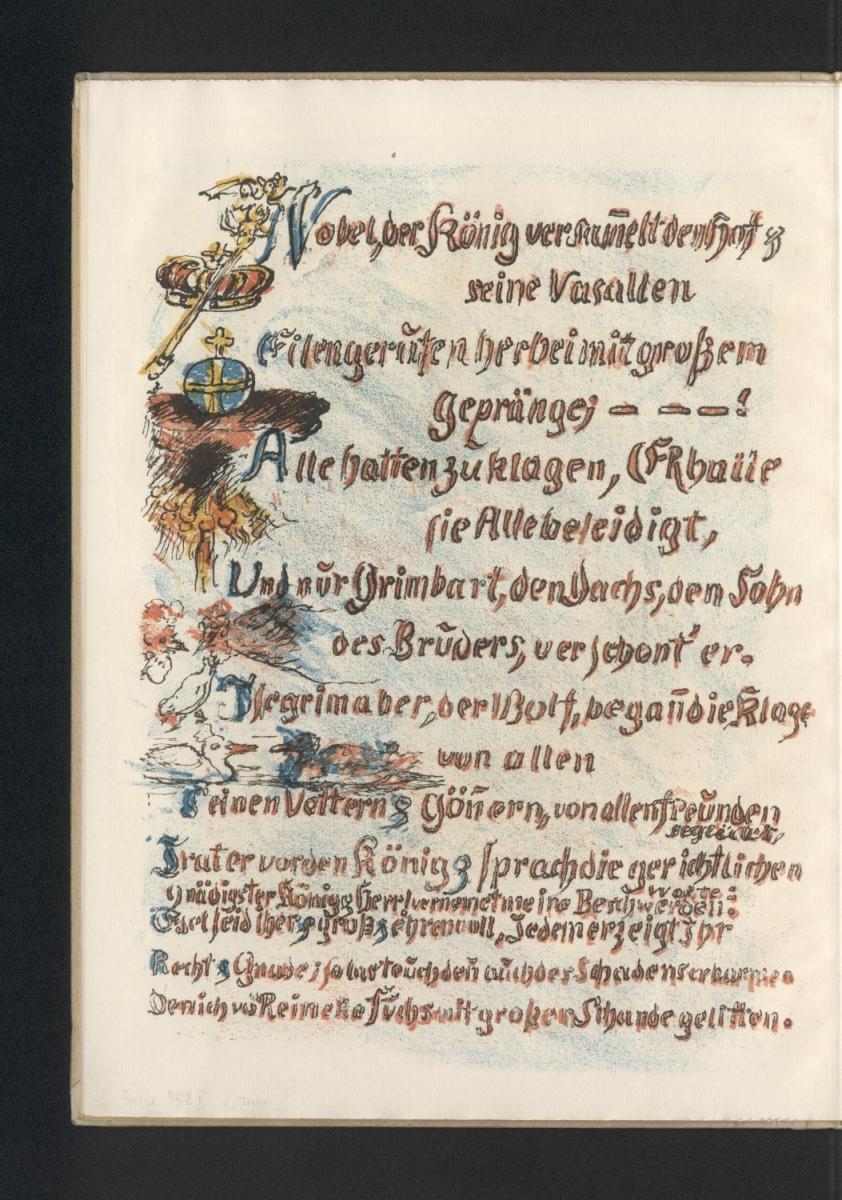 Nobel, der König versam̄elt den Hof &
seine Vasallen
Eilen gerufen herbei mit großem
Gepränge; — — —!
Alle hatten zu klagen, ER hatte
sie Alle beleidigt,
Und nur Grimbart, den Dachs, den Sohn
des Bruders, verschont' er.
Isegrim aber, der Wolf, began̄ die Klage
von allen
Seinen Vettern & Gön̄ern, von allen Freunden
begleitet,
Trat er vor den König & sprach die gerichtlichen
Worte:
Gnädigster König & Herr! vernemet meine Beschwerden:
Edel seid ihr & groß & ehrenvoll, Jedem erzeigt Ihr
Recht & Gnade; so last euch den̄ auch der Schadens erbarmen
Den ich vō Reineke Fuchs mit großer Schande gelitten.